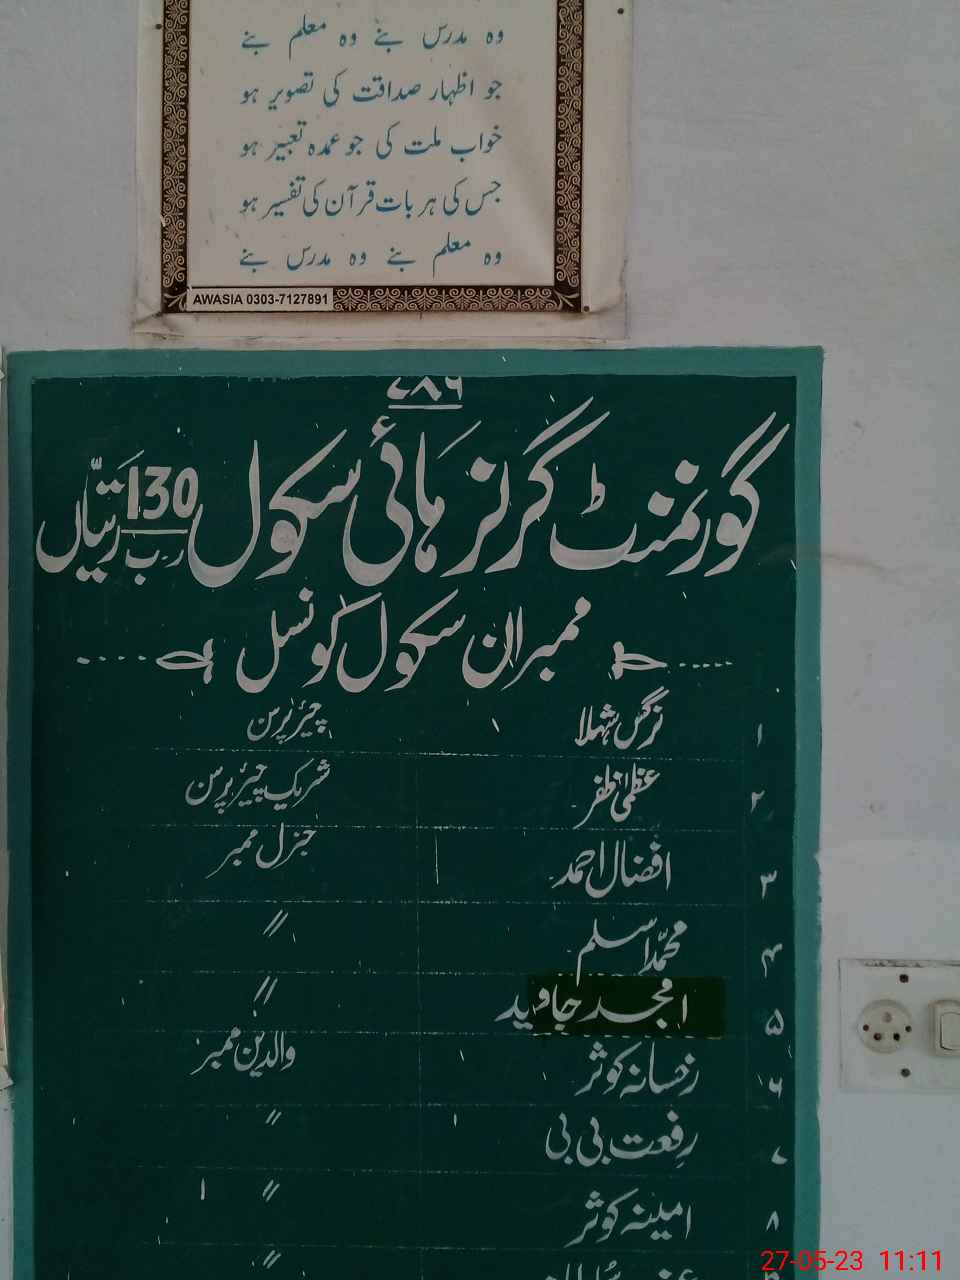 وہ مدرس بنے وہ معلم بنے
جو اظہار صداقت کی تصویر ہو
خواب ملت کی جو عمدہ تعبیر ہو
جس کی ہر بات قرآن کی تفسیر ہو
وہ معلم بنے وہ مدرس بنے
AWASIA 0303-7127891
۷۸۶
گورنمنٹ گرلز ہائی سکول 130 ر۔ب رتیاں
ممبران سکول کونسل
۱ نرگس شہلا چیئرپرسن
۲ عظمیٰ ظفر شریک چیئرپرسن
۳ افضال احمد جنرل ممبر
۴ محمد اسلم //
۵ امجد جاوید //
۶ رخسانہ کوثر والدین ممبر
۷ رفعت بی بی //
۸ امینہ کوثر //
//
27-05-23 11:11